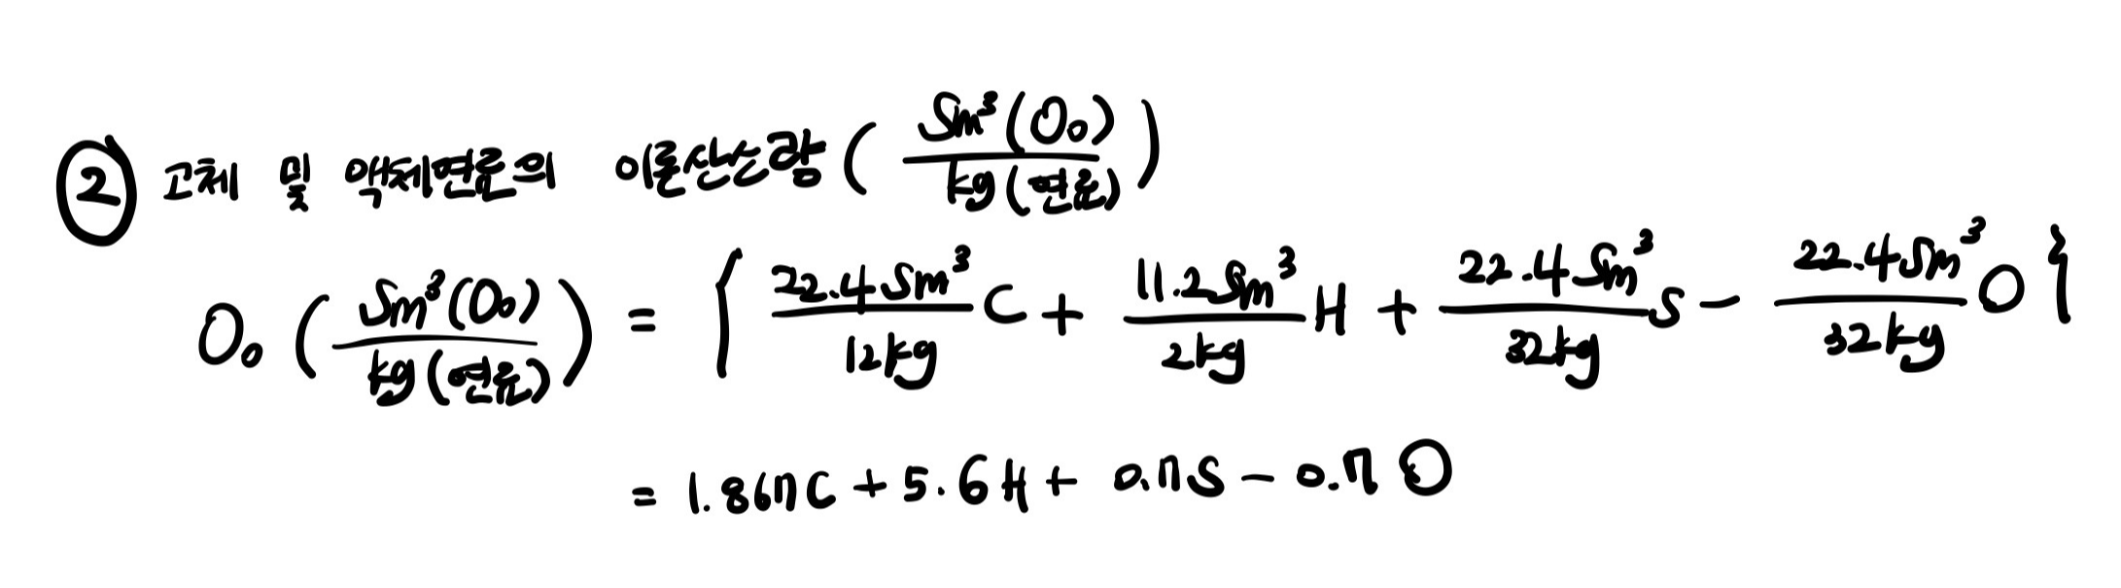 ② 고체 및 액체연료의 이론산소량 ( Sm³(O₀) / kg(연료) )
O₀ ( Sm³(O₀) / kg(연료) ) = { 22.4Sm³ / 12kg C + 11.2Sm³ / 2kg H + 22.4Sm³ / 32kg S - 22.4Sm³ / 32kg O }
= 1.867C + 5.6H + 0.7S - 0.7 O